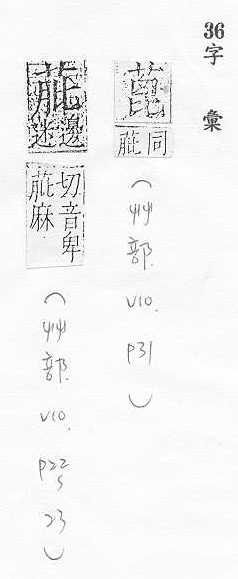 36 字彙
蓖
同
(艸部. V10. P31)
邊迷
切音卑
麻
(艸部. V10. P22
5 23)